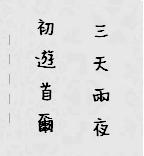 三天兩夜
初遊首爾